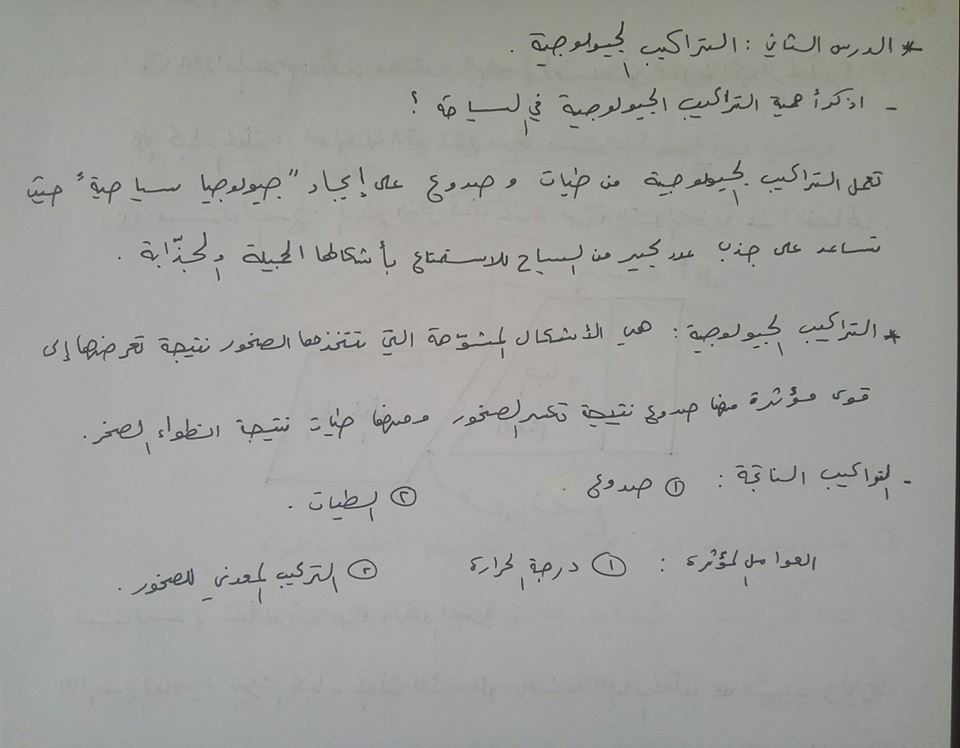 * الدرس الثاني : التراكيب الجيولوجية .
- اذكر أهمية التراكيب الجيولوجية في السياحة ؟
تعمل التراكيب الجيولوجية من طيات و صدوع على إيجاد "جيولوجيا سياحية" حيث
تساعد على جذب عدد كبير من السياح للاستمتاع بأشكالها الجميلة والجذّابة .
* التراكيب الجيولوجية : هي الأشكال المشوّهة التي تتخذها الصخور نتيجة تعرضها إلى
قوى مؤثرة منها صدوع نتيجة تكسر الصخور ومنها طيات نتيجة انطواء الصخر .
- التراكيب الناتجة : ① صدوع . ② الطيات .
العوامل المؤثرة : ① درجة الحرارة ② التركيب المعدني للصخور .